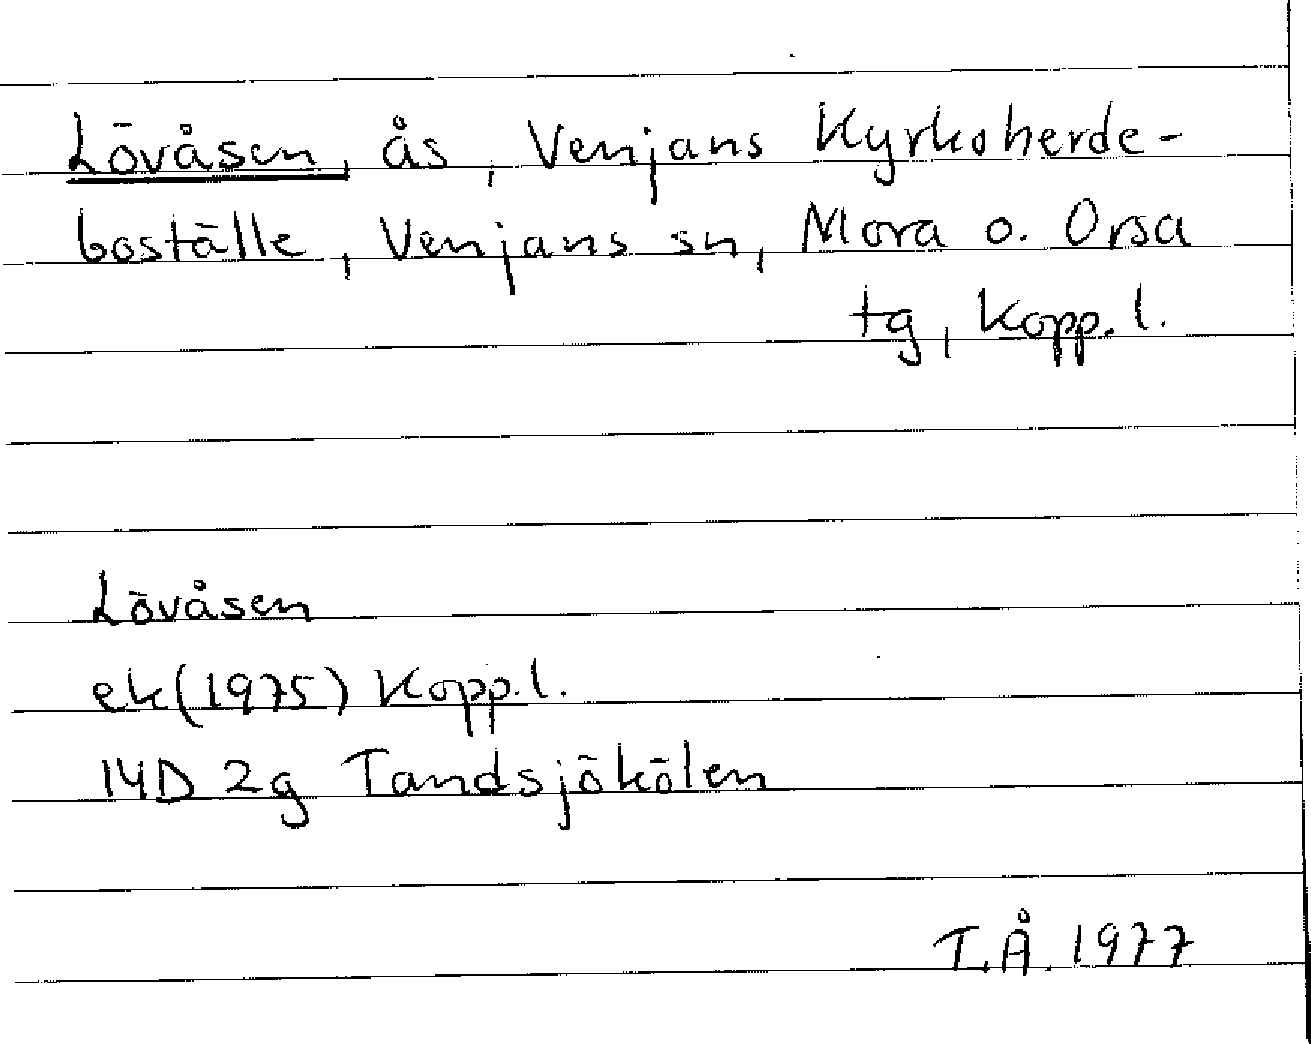 Lövåsen, ås, Venjans Kyrkoherde-
boställe, Venjans sn, Mora o. Orsa
tg, Kopp. l.
Lövåsen
ek(1975) Kopp. l.
14D 2g Tandsjökölen
T.Å. 1977